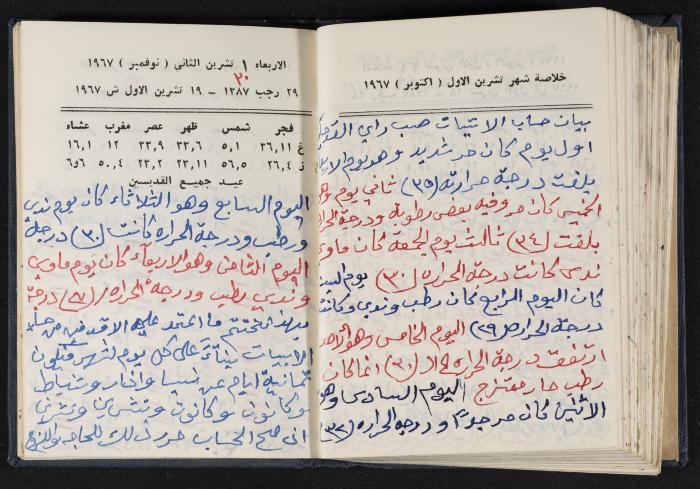 خلاصة شهر تشرين الاول ( اكتوبر ) ١٩٦٧
بيان حساب الاثنيات صب راي القد
اول يوم كان حر شديد وهو يوم الا
بلغت درجة حرارته (٣٥) ثاني يوم وهو
الخميس كان حر وفيه بعض رطوبة ودرجة الحرا
بلغت (٣٤) ثالث يوم الجمعة كان ماوي
ندي كانت درجة الحراره (٣٠) يوم السبت
كان اليوم الرابع كان رطب وندي وكانت
درجة الحراره (٢٩) اليوم الخامس وهو الاحد
ارتفعت درجة الحراره الى (٣٠) انما كان
رطب حار ممتزج اليوم السادس وهو
الاثنين كان حر ودرجة الحراره (٣٢)
الاربعاء ١ تشرين الثاني ( نوفمبر ) ١٩٦٧
٣٠
٢٩ رجب ١٣٨٧ – ١٩ تشرين الاول ش ١٩٦٧
فجر شمس ظهر عصر مغرب عشاء
غ ٣٦,١١ ٥,١ ٣٣,٦ ٣٣,٩ ١٢ ١٦,١
ز ٢٦,٤ ٥٦,٥ ٢٣,١١ ٢٣,٢ ٥٠,٤ ٦و٦
عيد جميع القديسين
اليوم السابع وهو الثلاثاء كان يوم ندي
ورطب ودرجة الحراره كانت (٣٠) درجة
اليوم الثامن وهو الاربعاء كان يوم ماوي
وندي رطب ودرجة الحراره (٢٧) درجة
نختتم ما اعتمد عليه الاقدمين من حساب
بناءً على كل يوم لشهر فيكون
ثمانية ايام عن نيسان واذار وشباط
وكانون وكانون وتشرين وتشرين
ان صح الحساب حررت ذلك للحاجه